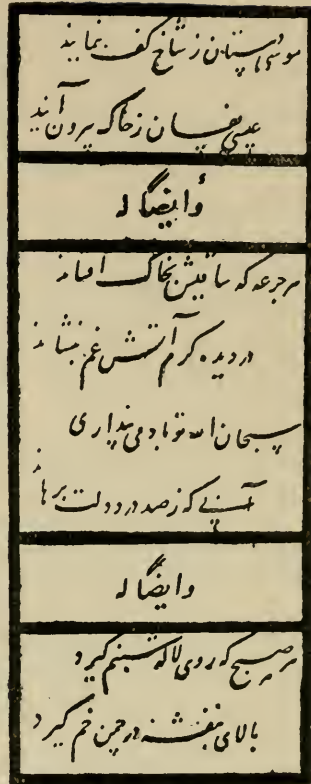 موسی دستان ز شاخ کف بنمایند
عیسی نفسان ز خاک بیرون آیند
وأیضًا له
هر جرعه که ساقیش بخاک افشاند
در دیده گرم آتش غم بنشاند
سبحان الله تو باد می پنداری
آبی که ز صد درد دلت برهاند
وایضًا له
هر صبح که روی لاله شبنم گیرد
بالای بنفشه در چمن خم گیرد